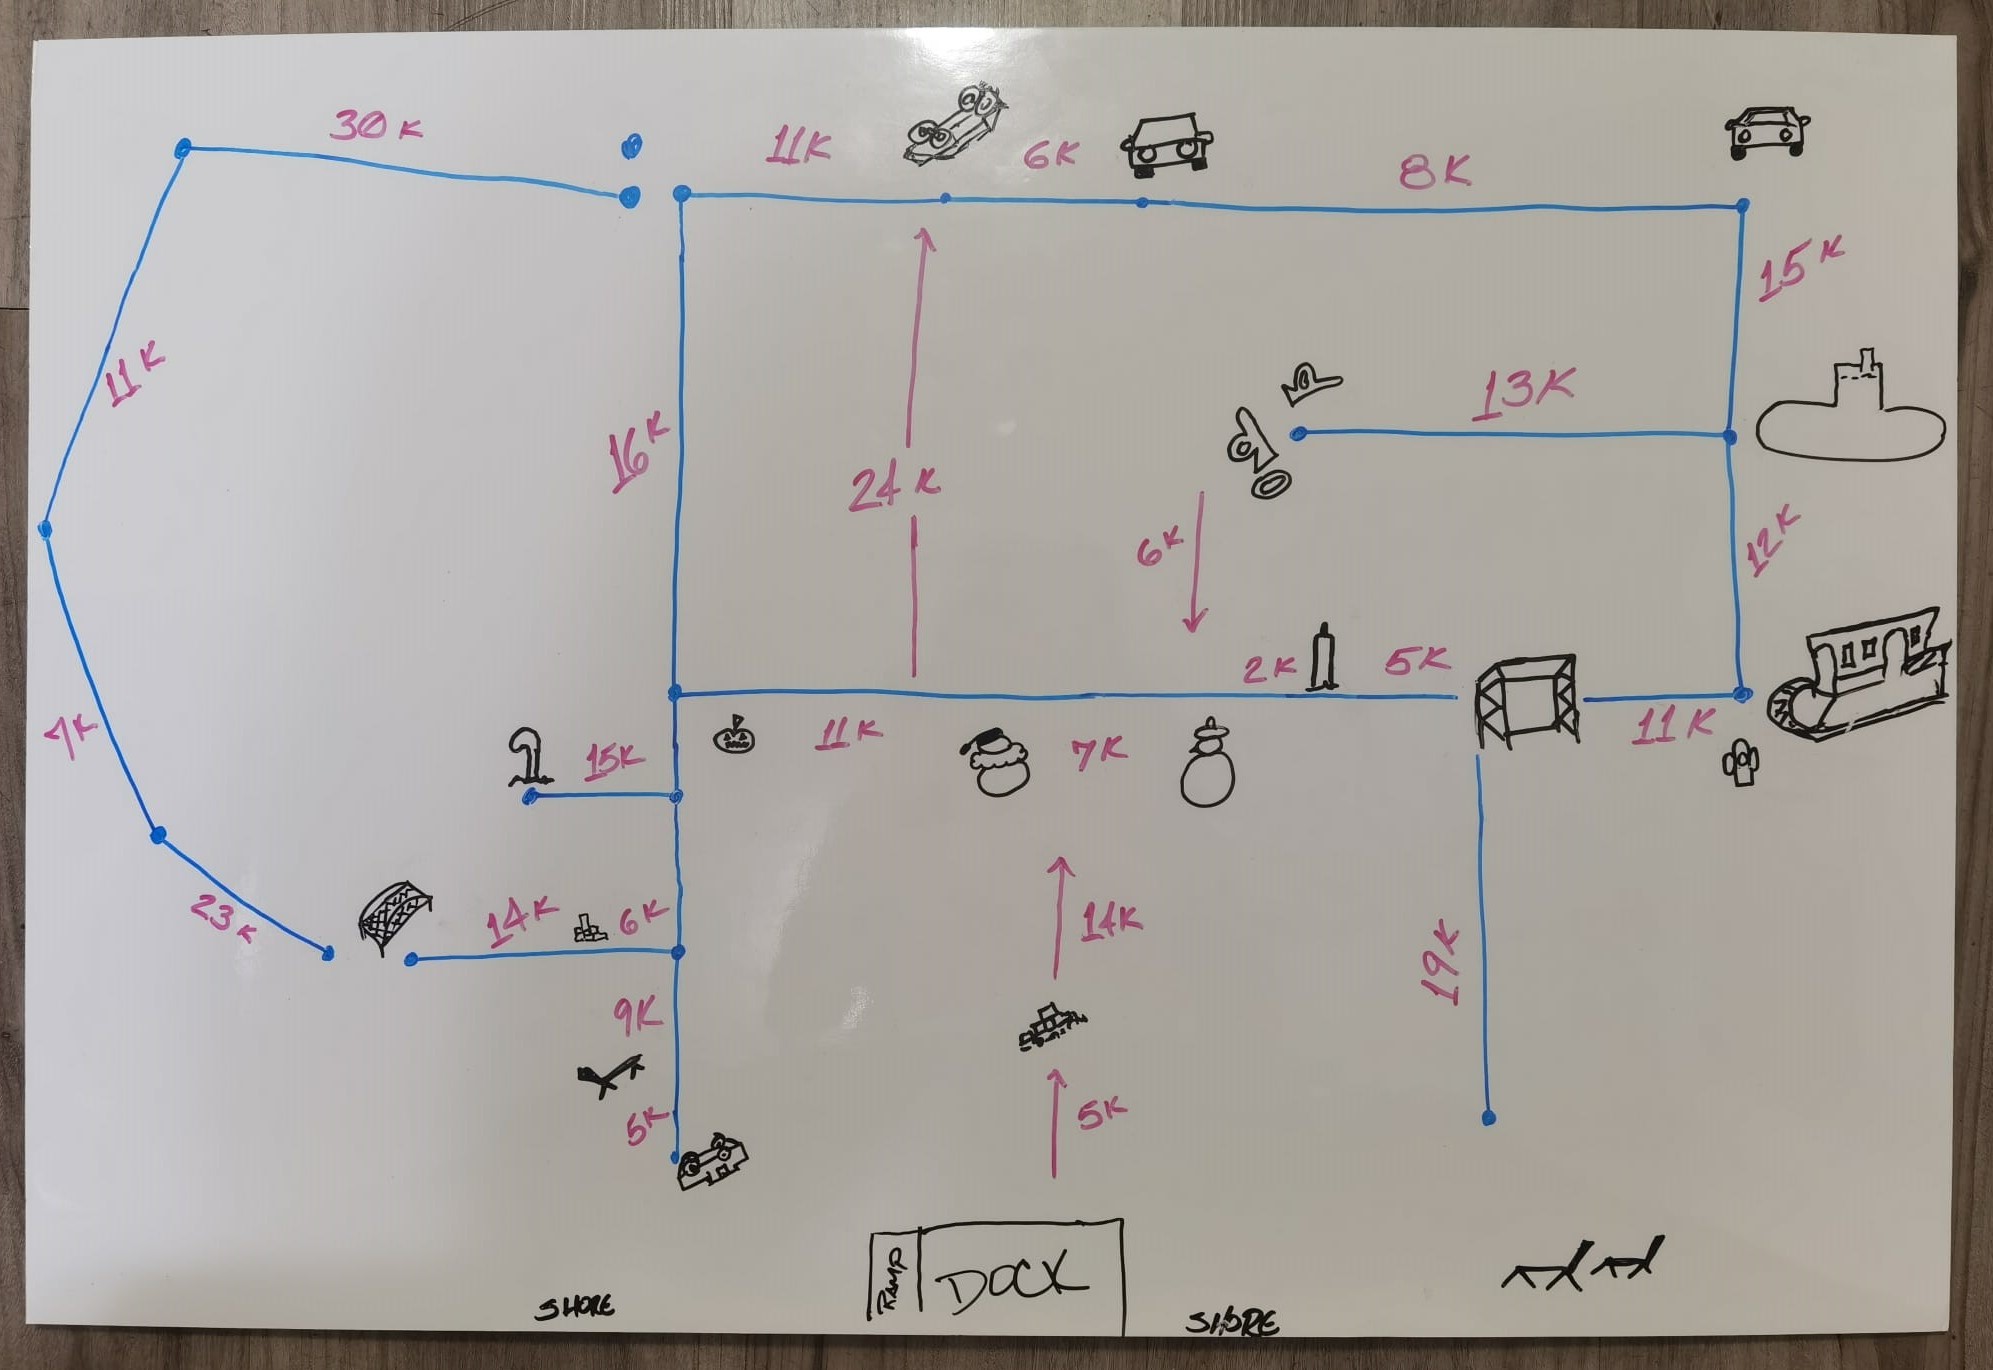 30K
11K
6K
8K
15K
11K
16K
24K
13K
6K
12K
2K
5K
15K
11K
7K
11K
23K
14K
6K
14K
19K
9K
5K
5K
RAMP
DOCK
SHORE
SHORE